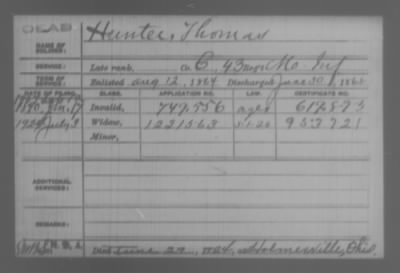 DEAD
Hunter, Thomas
NAME OF SOLDIER:
SERVICE: Late rank, Co. C, 43 Reg't Mo. Inf
TERM OF SERVICE: Enlisted Aug 12, 1864 Discharged June 30, 1865
DATE OF FILING. CLASS. APPLICATION NO. LAW. CERTIFICATE NO.
1890, 17 Invalid, 747.556 617.873
1924, July 3 Widow, 1221563 5-1-20 953721
Minor,
ADDITIONAL SERVICES:
REMARKS:
Died June 29, 1924, at Holmesville, Ohio